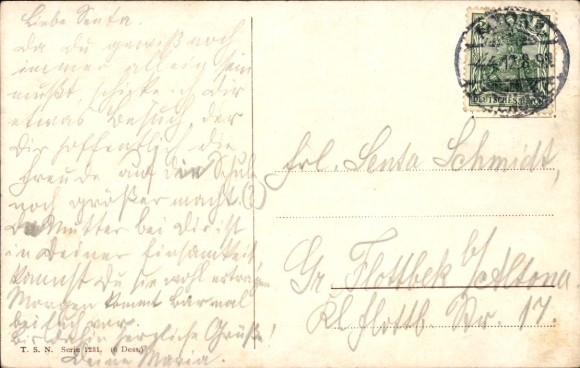 Liebe Senta.
Da Du gewiß noch
immer allein sein
mußt, schicke ich Dir
etwas Besuch, der
Dir hoffentlich die
Freude auf die Schul
noch größer macht.
Mutter bei Dir ist
in Deiner Einsamkeit
kannst Du sie wohl ertragen
Morgen kommt
bei Euch vor.
Bis dahin herzliche Grüße!
Deine Maria.
T. S. N. Serie 1231. (6 Dess.)
ALTONA
12.8-9
DEUTSCHES REICH
Frl. Senta Schmidt,
Gr Flottbek b/ Altona.
Kl Flottb Str. 17.